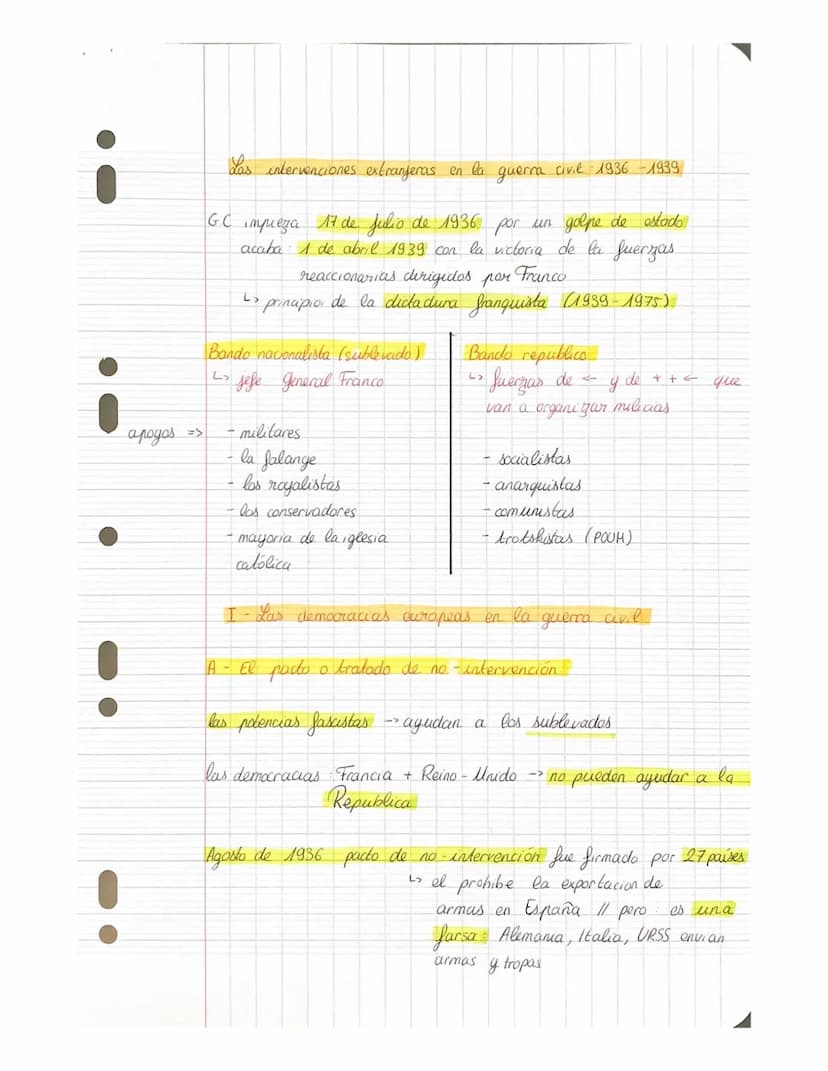 Las intervenciones extranjeras en la guerra civil 1936 - 1939
GC impieza 17 de julio de 1936 por un golpe de estado
acaba : 1 de abril 1939 con la victoria de la fuerzas
reaccionarias dirigidos por Franco
↳ principio de la dictadura franquista (1939 - 1975)
Bando nacionalista (sublevado)
↳ jefe general Franco
apoyos => - militares
- la falange
- los royalistas
- los conservadores
- mayoria de la iglesia
católica
Bando republico
↳ fuerzas de ← y de + + ← que
van a organizar milicias
- socialistas
- anarquistas
- comunistas
- trotskistas (POUM)
I - Las democracias europeas en la guerra civil
A - El pacto o tratado de no - intervención
las potencias fascistas -> ayudan a los sublevados
las democracias : Francia + Reino - Unido -> no pueden ayudar a la
Republica
Agosto de 1936 pacto de no - intervención fue firmado por 27 países
↳ el prohibe la exportacion de
armas en España // pero : es una
farsa : Alemania, Italia, URSS envian
armas y tropas